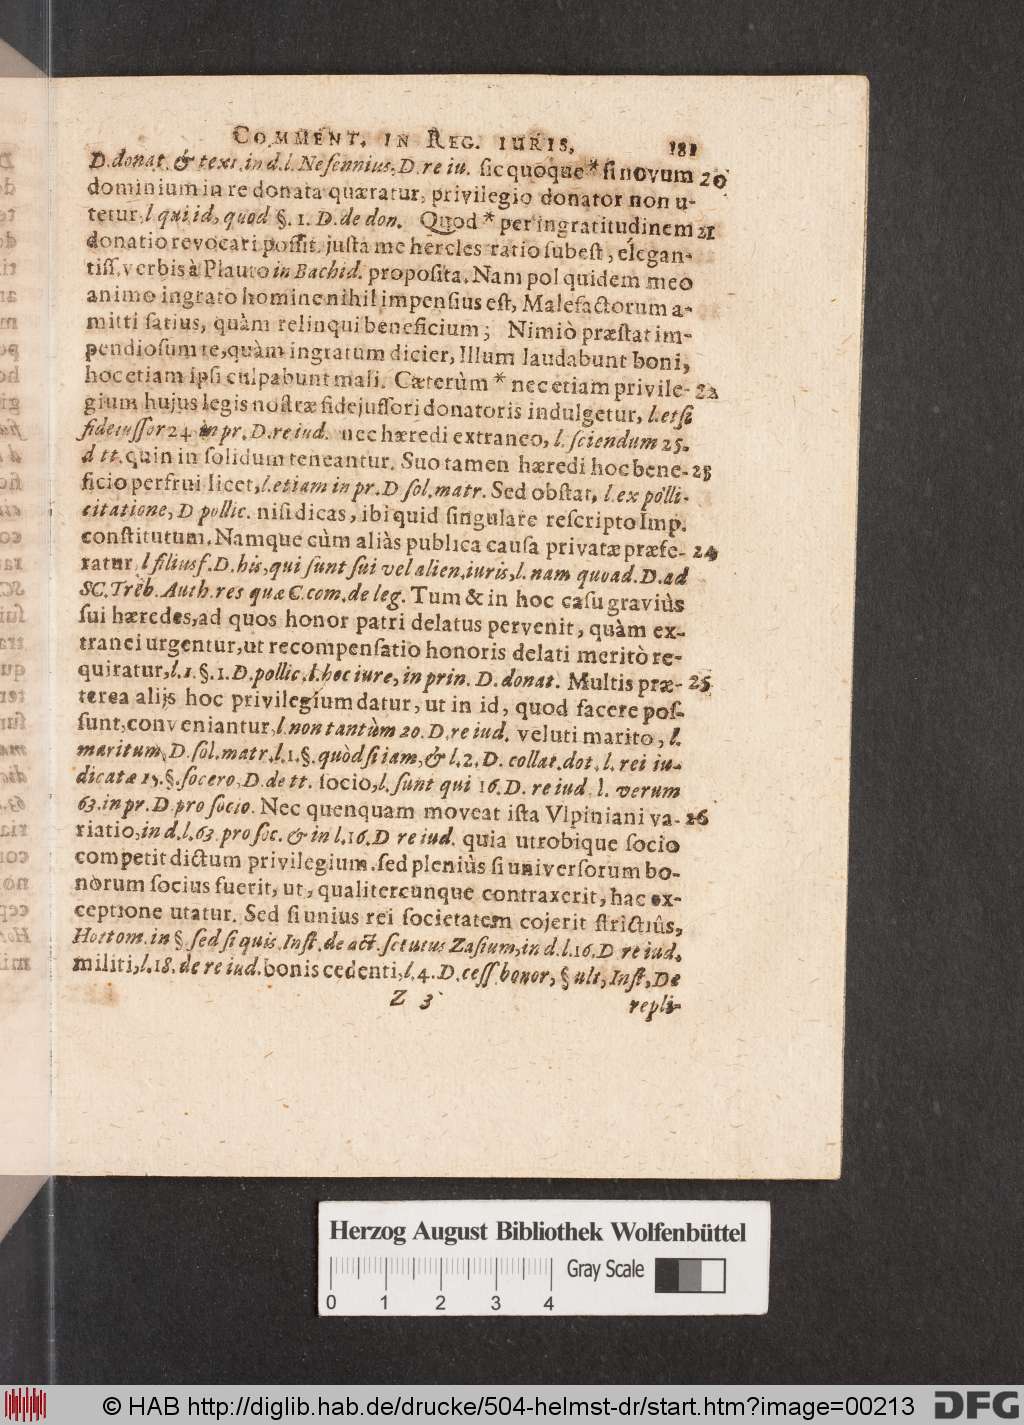 COMMENT. IN REG. IURIS. 181
D. donat. & text. in d. l. Nesennius, D. re iu. sic quoque * si novum 20
dominium in re donata quæratur, privilegio donator non u-
tetur, l qui id, quod §. 1. D. de don. Quod * per ingratitudinem 21
donatio revocari possit, justa me hercles ratio subest, elegan-
tiss. verbis à Plauto in Bachid. proposita. Nam pol quidem meo
animo ingrato homine nihil impensius est, Malefactorum a-
mitti satius, quàm relinqui beneficium; Nimiò præstat im-
pendiosum te, quàm ingratum dicier, Illum laudabunt boni,
hoc etiam ipsi culpabunt mali. Cæterùm * nec etiam privile- 22
gium hujus legis nostræ fidejussori donatoris indulgetur, l. etsi
fideiussor 24 in pr. D. re iud. nec hæredi extraneo, l. sciendum 25.
d tt. quin in solidum teneantur. Suo tamen hæredi hoc bene- 23
ficio perfrui licet, l. etiam in pr. D sol. matr. Sed obstat, l. ex polli-
citatione, D pollic. nisi dicas, ibi quid singulare rescripto Imp.
constitutum. Namque cùm aliàs publica causa privatæ præfe- 24
ratur l filiusf. D. his, qui sunt sui vel alien. iuris, l. nam quoad. D. ad
SC. Treb. Auth. res quæ C. com. de leg. Tum & in hoc casu graviùs
sui hæredes, ad quos honor patri delatus pervenit, quàm ex-
tranei urgentur, ut recompensatio honoris delati meritò re-
quiratur, l. 1. §. 1. D. pollic. l. hoc iure, in prin. D. donat. Multis præ- 25
terea alijs hoc privilegium datur, ut in id, quod facere pos-
sunt, conveniantur, l. non tantùm 20. D. re iud. veluti marito, l.
maritum, D. sol. matr. l. 1. §. quòd si iam, & l. 2. D. collat. dot. l. rei iu-
dicatæ 15. §. socero, D. de tt. socio, l. sunt qui 16. D. re iud. l. verum
63. in pr. D. pro socio. Nec quenquam moveat ista Vlpiniani va- 26
riatio, in d. l. 63. pro soc. & in l. 16. D re iud. quia utrobique socio
competit dictum privilegium. sed pleniùs si universorum bo-
norum socius fuerit, ut, qualitercunque contraxerit, hac ex-
ceptione utatur. Sed si unius rei societatem cojerit strictiùs,
Hottom. in §. sed si quis. Inst. de act. secutus Zasium, in d. l. 16. D re iud.
militi, l. 18. de re iud. bonis cedenti, l. 4. D. cess. bonor, § ult, Inst, De
Z 3 repli-
Herzog August Bibliothek Wolfenbüttel
Gray Scale
0 1 2 3 4
© HAB http://diglib.hab.de/drucke/504-helmst-dr/start.htm?image=00213
DFG